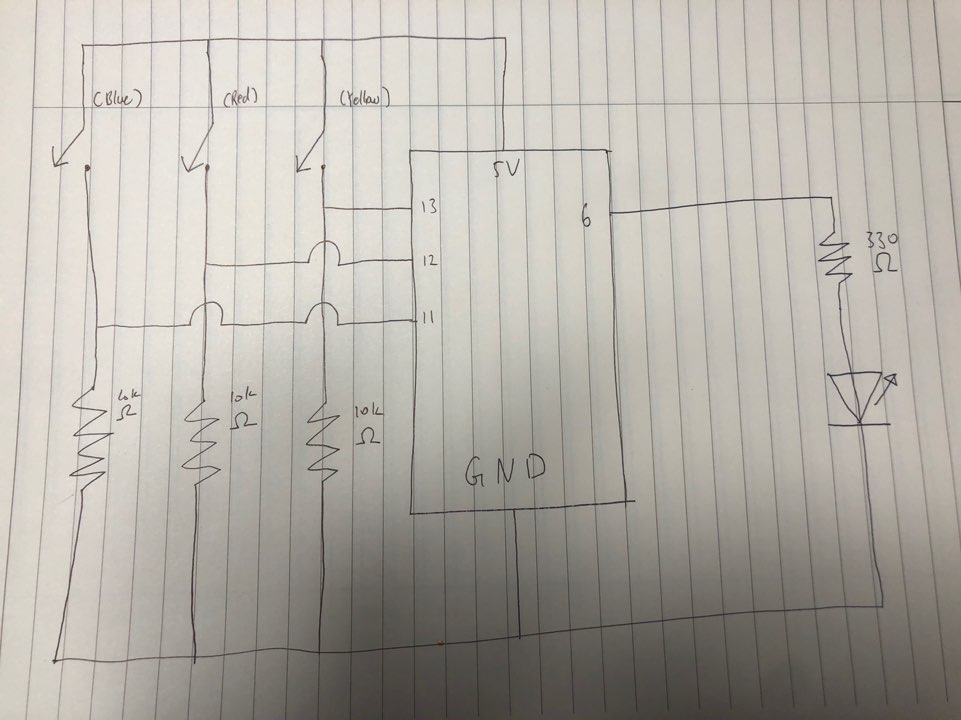 (Blue)
(Red)
(Yellow)
5V
13
6
12
11
330
Ω
10k
Ω
10k
Ω
10k
Ω
GND